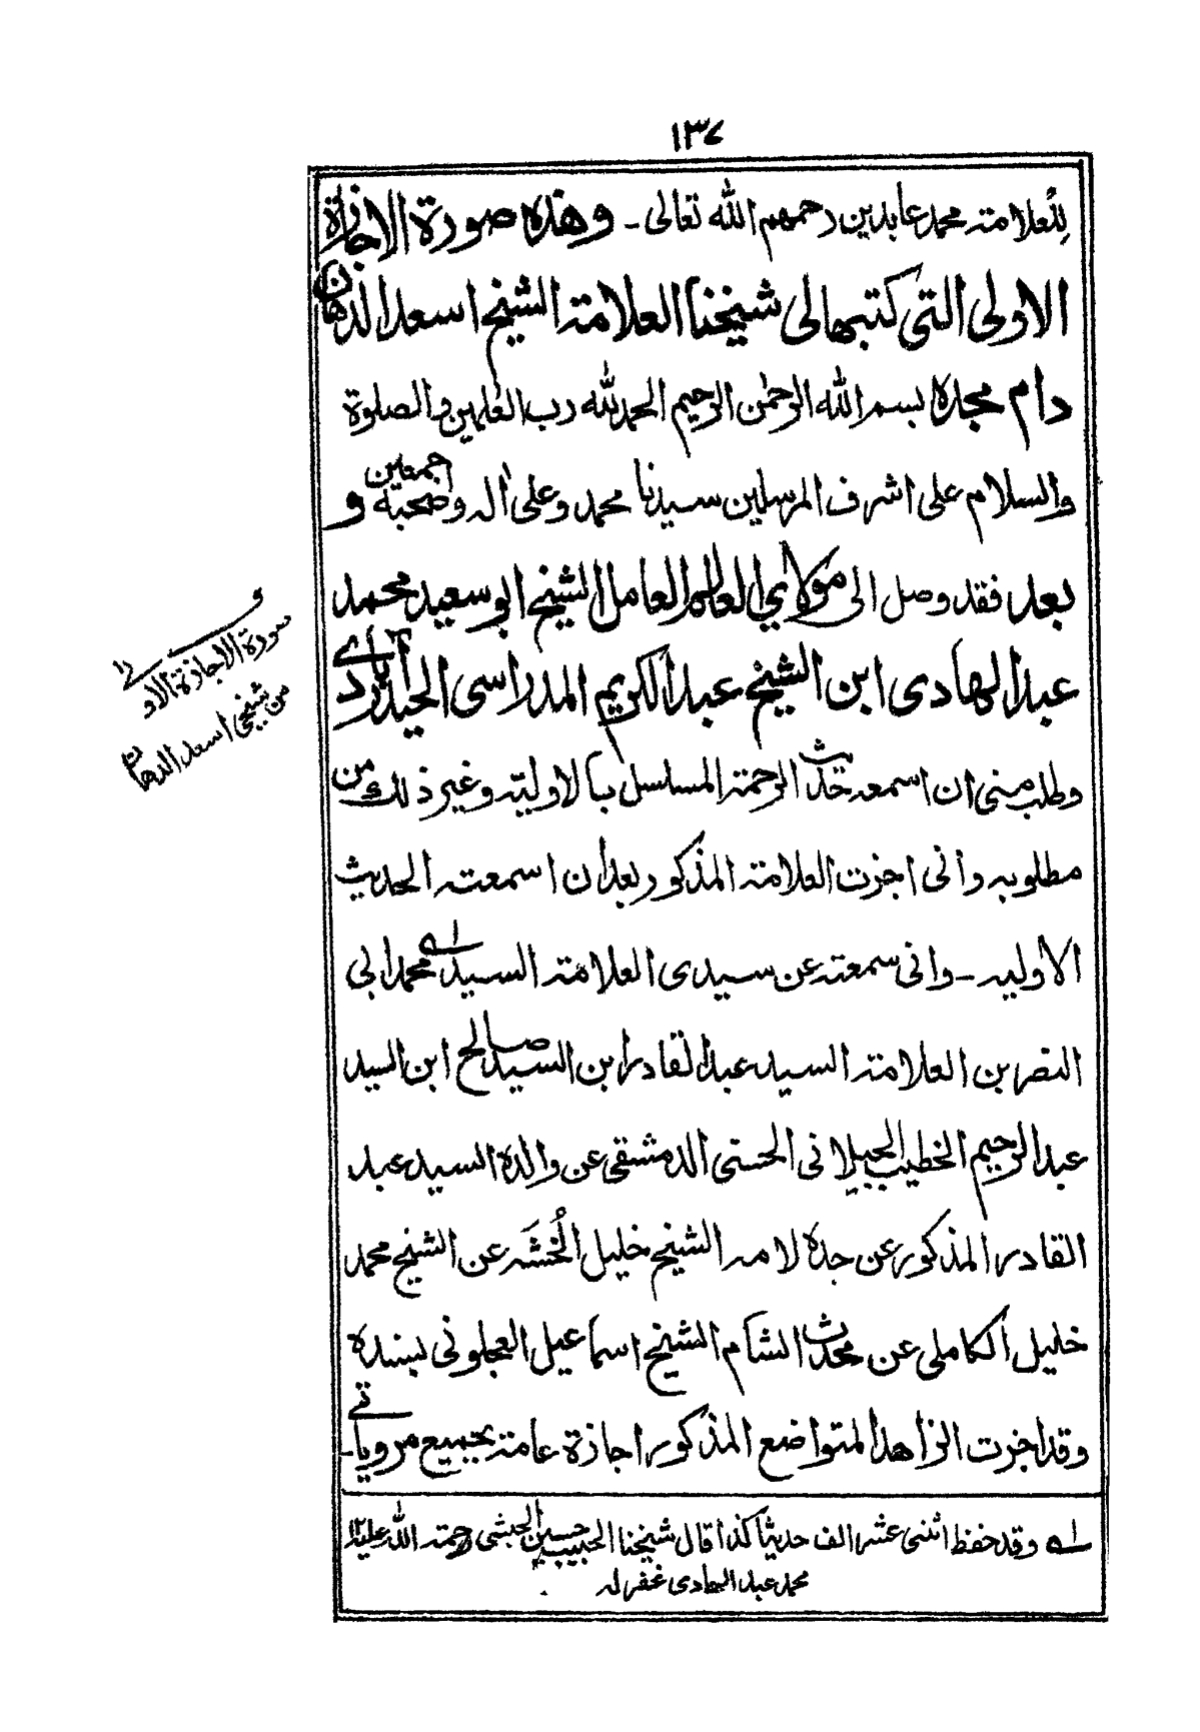 ١٣٧
للعلامة محمد عابدين رحمهم الله تعالى ـ وهذه صورة الاجازة
الاولى التى كتبها لى شيخنا العلامة الشيخ اسعد الدهان
دام مجده بسم الله الرحمٰن الرحيم الحمد لله رب العٰلمين والصلوة
والسلام على اشرف المرسلين سيدنا محمد وعلى اٰله وصحبه اجمعين و
بعد فقد وصل الى مولاي العالم العامل الشيخ ابو سعيد محمد
عبد الهادى ابن الشيخ عبد الكريم المدراسى الحيدراٰبادے
وطلب منى ان اسمعه حديث الرحمة المسلسل بالاولية وغير ذلك من
مطلوبه وانى اجزت العلامة المذكور بعد ان اسمعته الحديث
الاوليه ـ وانى سمعته عن سيدى العلامة السيد محمد ابى
النصر بن العلامة السيد عبد القادر ابن السيد صالح ابن السيد
عبد الرحيم الخطيب الجيلانى الحسنى الدمشقى عن والده السيد عبد
القادر المذكور عن جده لامه الشيخ خليل الخُشَه عن الشيخ محمد
خليل الكاملى عن محدث الشام الشيخ اسماعيل العجلونى بسنده
وقد اجزت الزاهد المتواضع المذكور اجازة عامة بجميع مروياتے ـ
وقد حفظ اثنى عشر الف حديثا كذا قال شيخنا الحبيب حسين الحبشى رحمة الله عليه ١٢
محمد عبد الهادى غفر له
صورة الاجازة الاولى
من شيخى اسعد الدهان